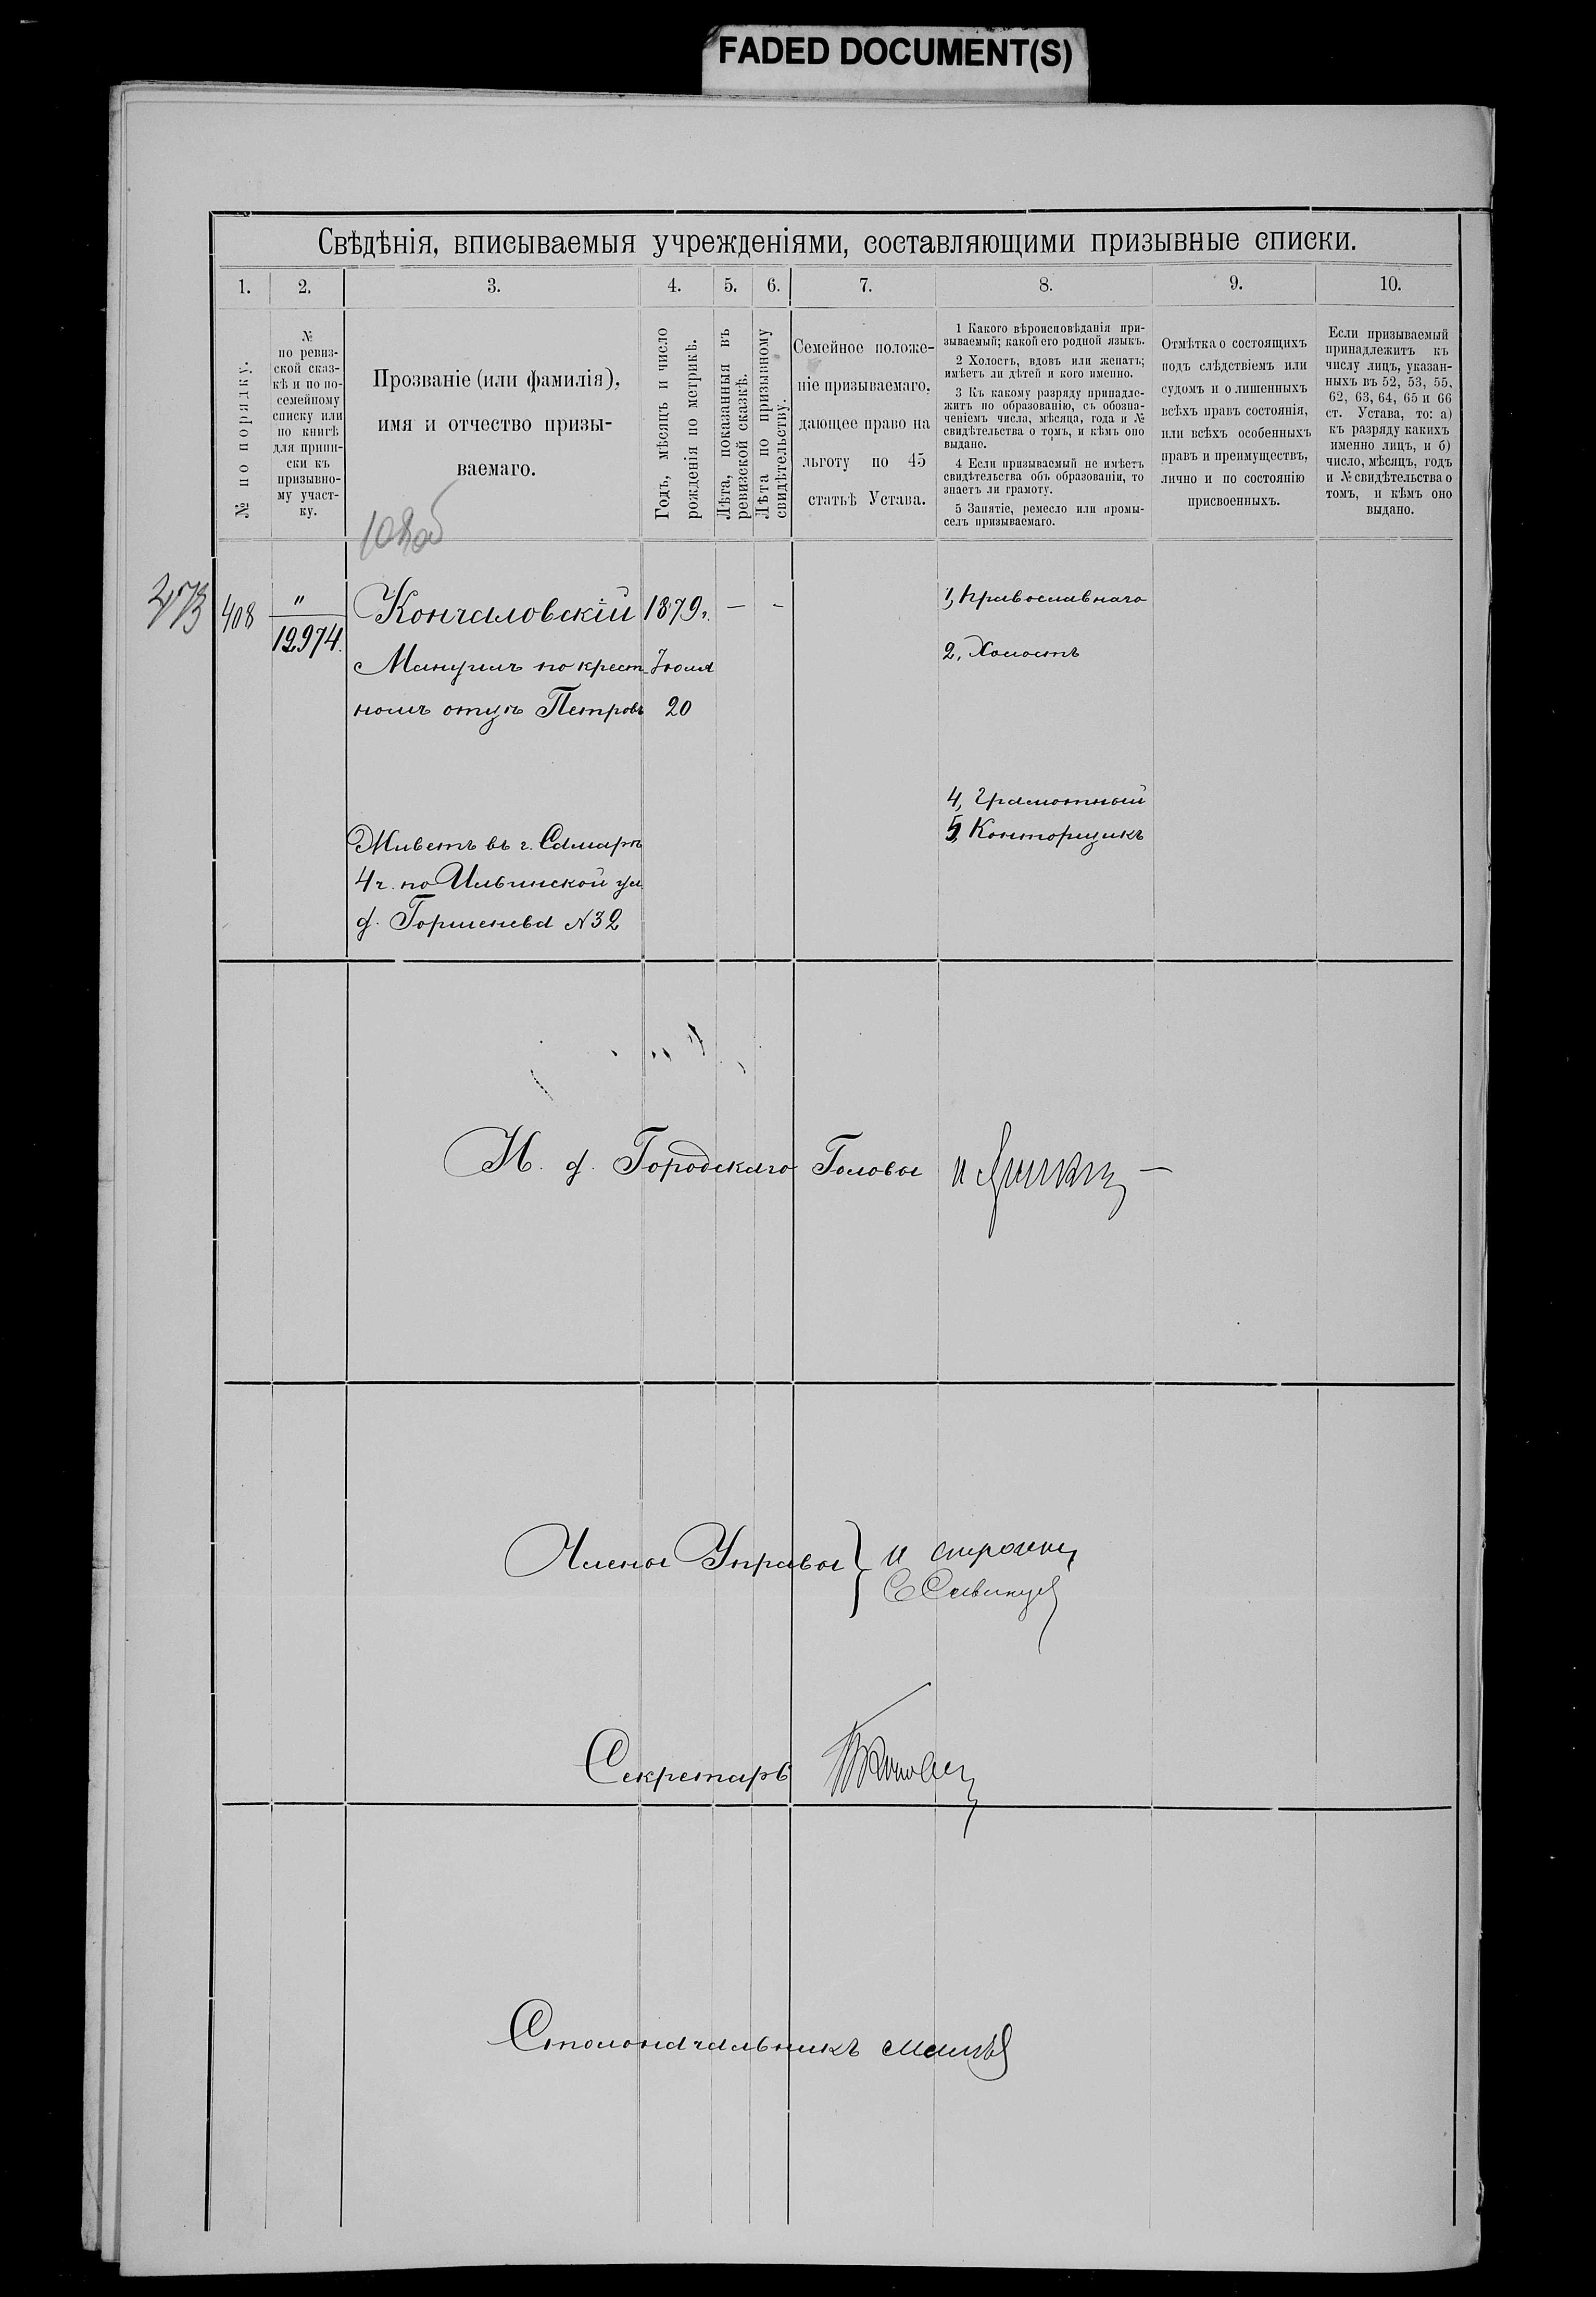 FADED DOCUMENT(S)
Свѣдѣнія, вписываемыя учрежденіями, составляющими призывные списки.
1.
2.
3.
4.
5.
6.
7.
8.
9.
10.
№ по порядку.
№
по ревиз-
ской сказ-
кѣ и по по-
семейному
списку или
по книгѣ
для припи-
ски къ
призывно-
му участ-
ку.
Прозваніе (или фамилія),
имя и отчество призы-
ваемаго.
Годъ, мѣсяцъ и число
рожденія по метрикѣ.
Лѣта, показанныя въ
ревизской сказкѣ.
Лѣта по призывному
свидѣтельству.
Семейное положе-
ніе призываемаго,
дающее право на
льготу по 45
статьѣ Устава.
1 Какого вѣроисповѣданія при-
зываемый; какой его родной языкъ.
2 Холостъ, вдовъ или женатъ;
имѣетъ ли дѣтей и кого именно.
3 Къ какому разряду принадле-
житъ по образованію, съ обозна-
ченіемъ числа, мѣсяца, года и №
свидѣтельства о томъ, и кѣмъ оно
выдано.
4 Если призываемый не имѣетъ
свидѣтельства объ образованіи, то
знаетъ ли грамоту.
5 Занятіе, ремесло или промы-
селъ призываемаго.
Отмѣтка о состоящихъ
подъ слѣдствіемъ или
судомъ и о лишенныхъ
всѣхъ правъ состоянія,
или всѣхъ особенныхъ
правъ и преимуществъ,
лично и по состоянію
присвоенныхъ.
Если призываемый
принадлежитъ къ
числу лицъ, указан-
ныхъ въ 52, 53, 55,
62, 63, 64, 65 и 66
ст. Устава, то: а)
къ разряду какихъ
именно лицъ, и б)
число, мѣсяцъ, годъ
и № свидѣтельства о
томъ, и кѣмъ оно
выдано.
408
"
12974.
Кончаловскій
Мануилъ по крест-
номъ отцѣ Петровъ
1879 г.
Іюля
20
—
-
1, Православнаго
2, Холостъ
4, Грамотный
5, Конторщикъ
Живетъ въ г. Самарѣ
4 ч. по Ильинской ул.
д. Горшенева № 32
И. д. Городскаго Головы
Члены Управы }
Секретарь
Столоначальникъ